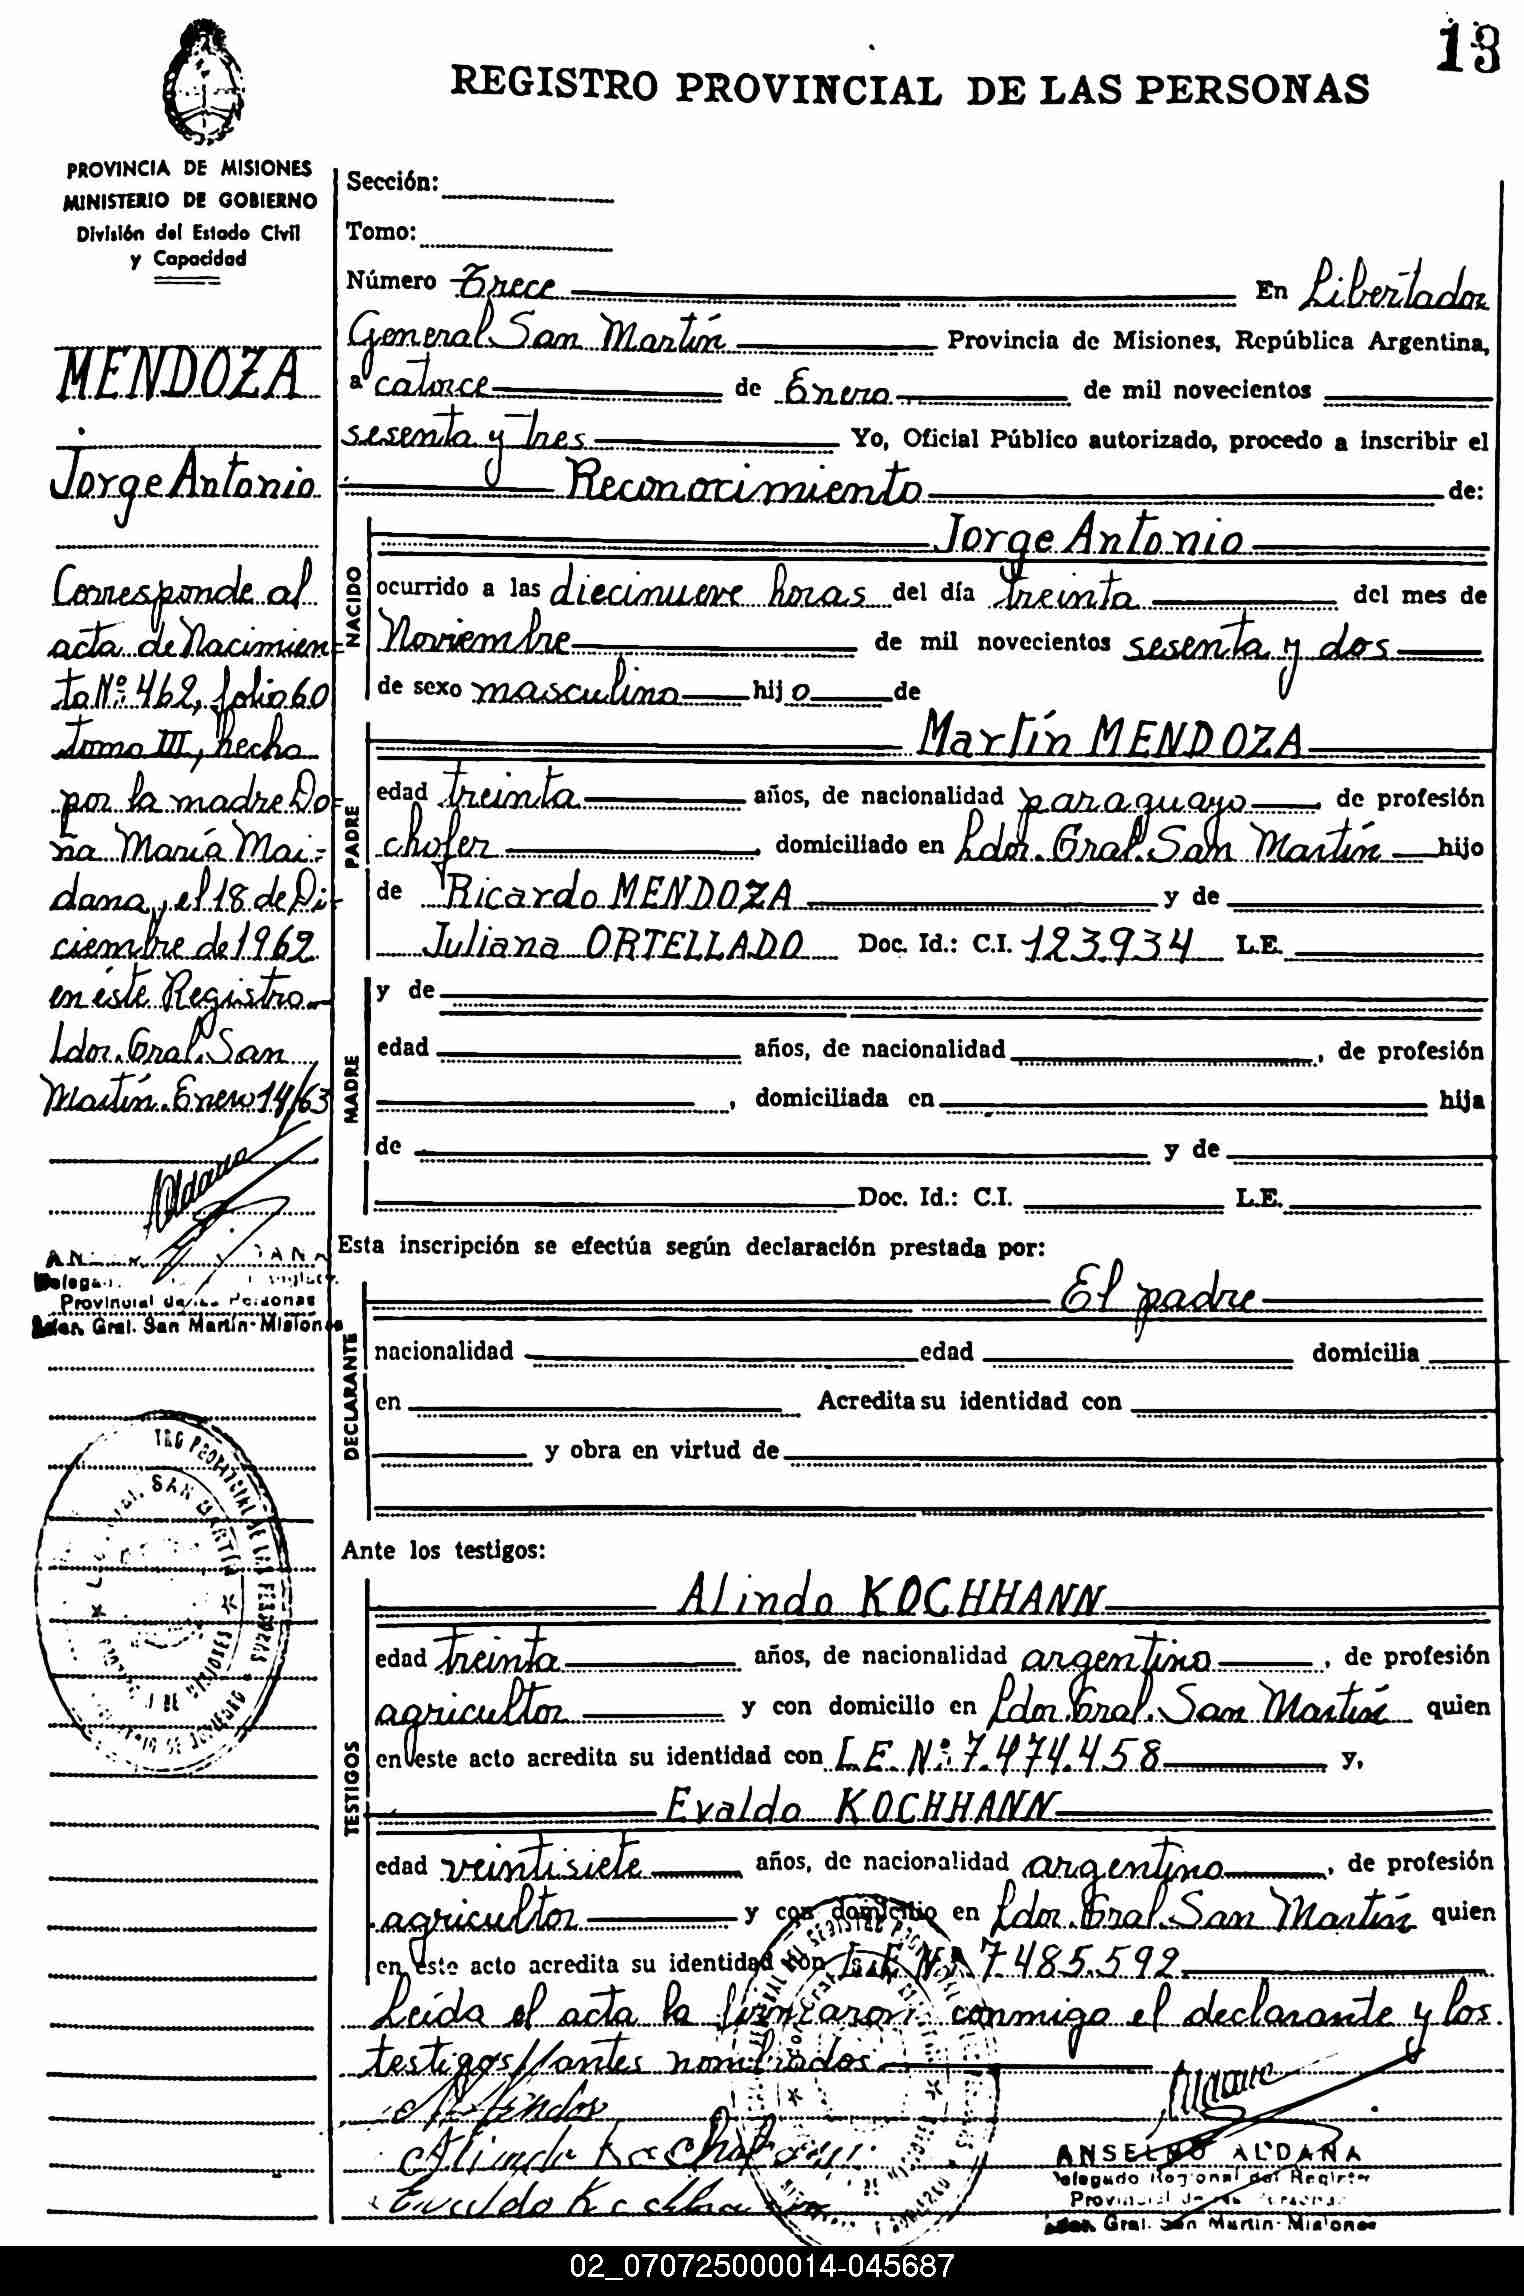 13
REGISTRO PROVINCIAL DE LAS PERSONAS
PROVINCIA DE MISIONES
MINISTERIO DE GOBIERNO
División del Estado Civil
y Capacidad
MENDOZA
Jorge Antonio
Corresponde al
acta de Nacimien=
to Nº: 462, folio 60
tomo III, hecho
por la madre Do=
ña María Mai=
dana, el 18 de Di=
ciembre de 1962
en éste Registro
Ldor. Gral. San
Martín. Enero 14/63
Provincial de las Personas
Ldor. Gral. San Martín-Misiones
SAN MARTIN
Sección:
Tomo:
Número Trece En Libertador
General San Martín Provincia de Misiones, República Argentina,
a catorce de Enero de mil novecientos
sesenta y tres Yo, Oficial Público autorizado, procedo a inscribir el
Reconocimiento de:
NACIDO
Jorge Antonio
ocurrido a las diecinueve horas del día treinta del mes de
Noviembre de mil novecientos sesenta y dos
de sexo masculino hijo de
PADRE
Martín MENDOZA
edad treinta años, de nacionalidad paraguayo, de profesión
chofer, domiciliado en Ldor. Gral. San Martín hijo
de Ricardo MENDOZA y de
Juliana ORTELLADO Doc. Id.: C.I. 123.934 L.E.
MADRE
y de
edad años, de nacionalidad, de profesión
, domiciliada en hija
de y de
Doc. Id.: C.I. L.E.
Esta inscripción se efectúa según declaración prestada por:
DECLARANTE
El padre
nacionalidad edad domicilia
en Acredita su identidad con
y obra en virtud de
Ante los testigos:
TESTIGOS
Alindo KOCHHANN
edad treinta años, de nacionalidad argentino, de profesión
agricultor y con domicilio en Ldor. Gral. San Martín quien
en este acto acredita su identidad con L.E. Nº: 7.474.458 y,
Evaldo KOCHHANN
edad veintisiete años, de nacionalidad argentino, de profesión
agricultor y con domicilio en Ldor. Gral. San Martín quien
en este acto acredita su identidad con L.E. Nº 7.485.592
Leída el acta la firmaron conmigo el declarante y los
testigos antes nombrados
Alindo Kochhann
Evaldo Kochhann
ANSELMO ALDANA
Delegado Regional del Registro
Provincial de las Personas
Ldor. Gral. San Martín-Misiones
02_070725000014-045687